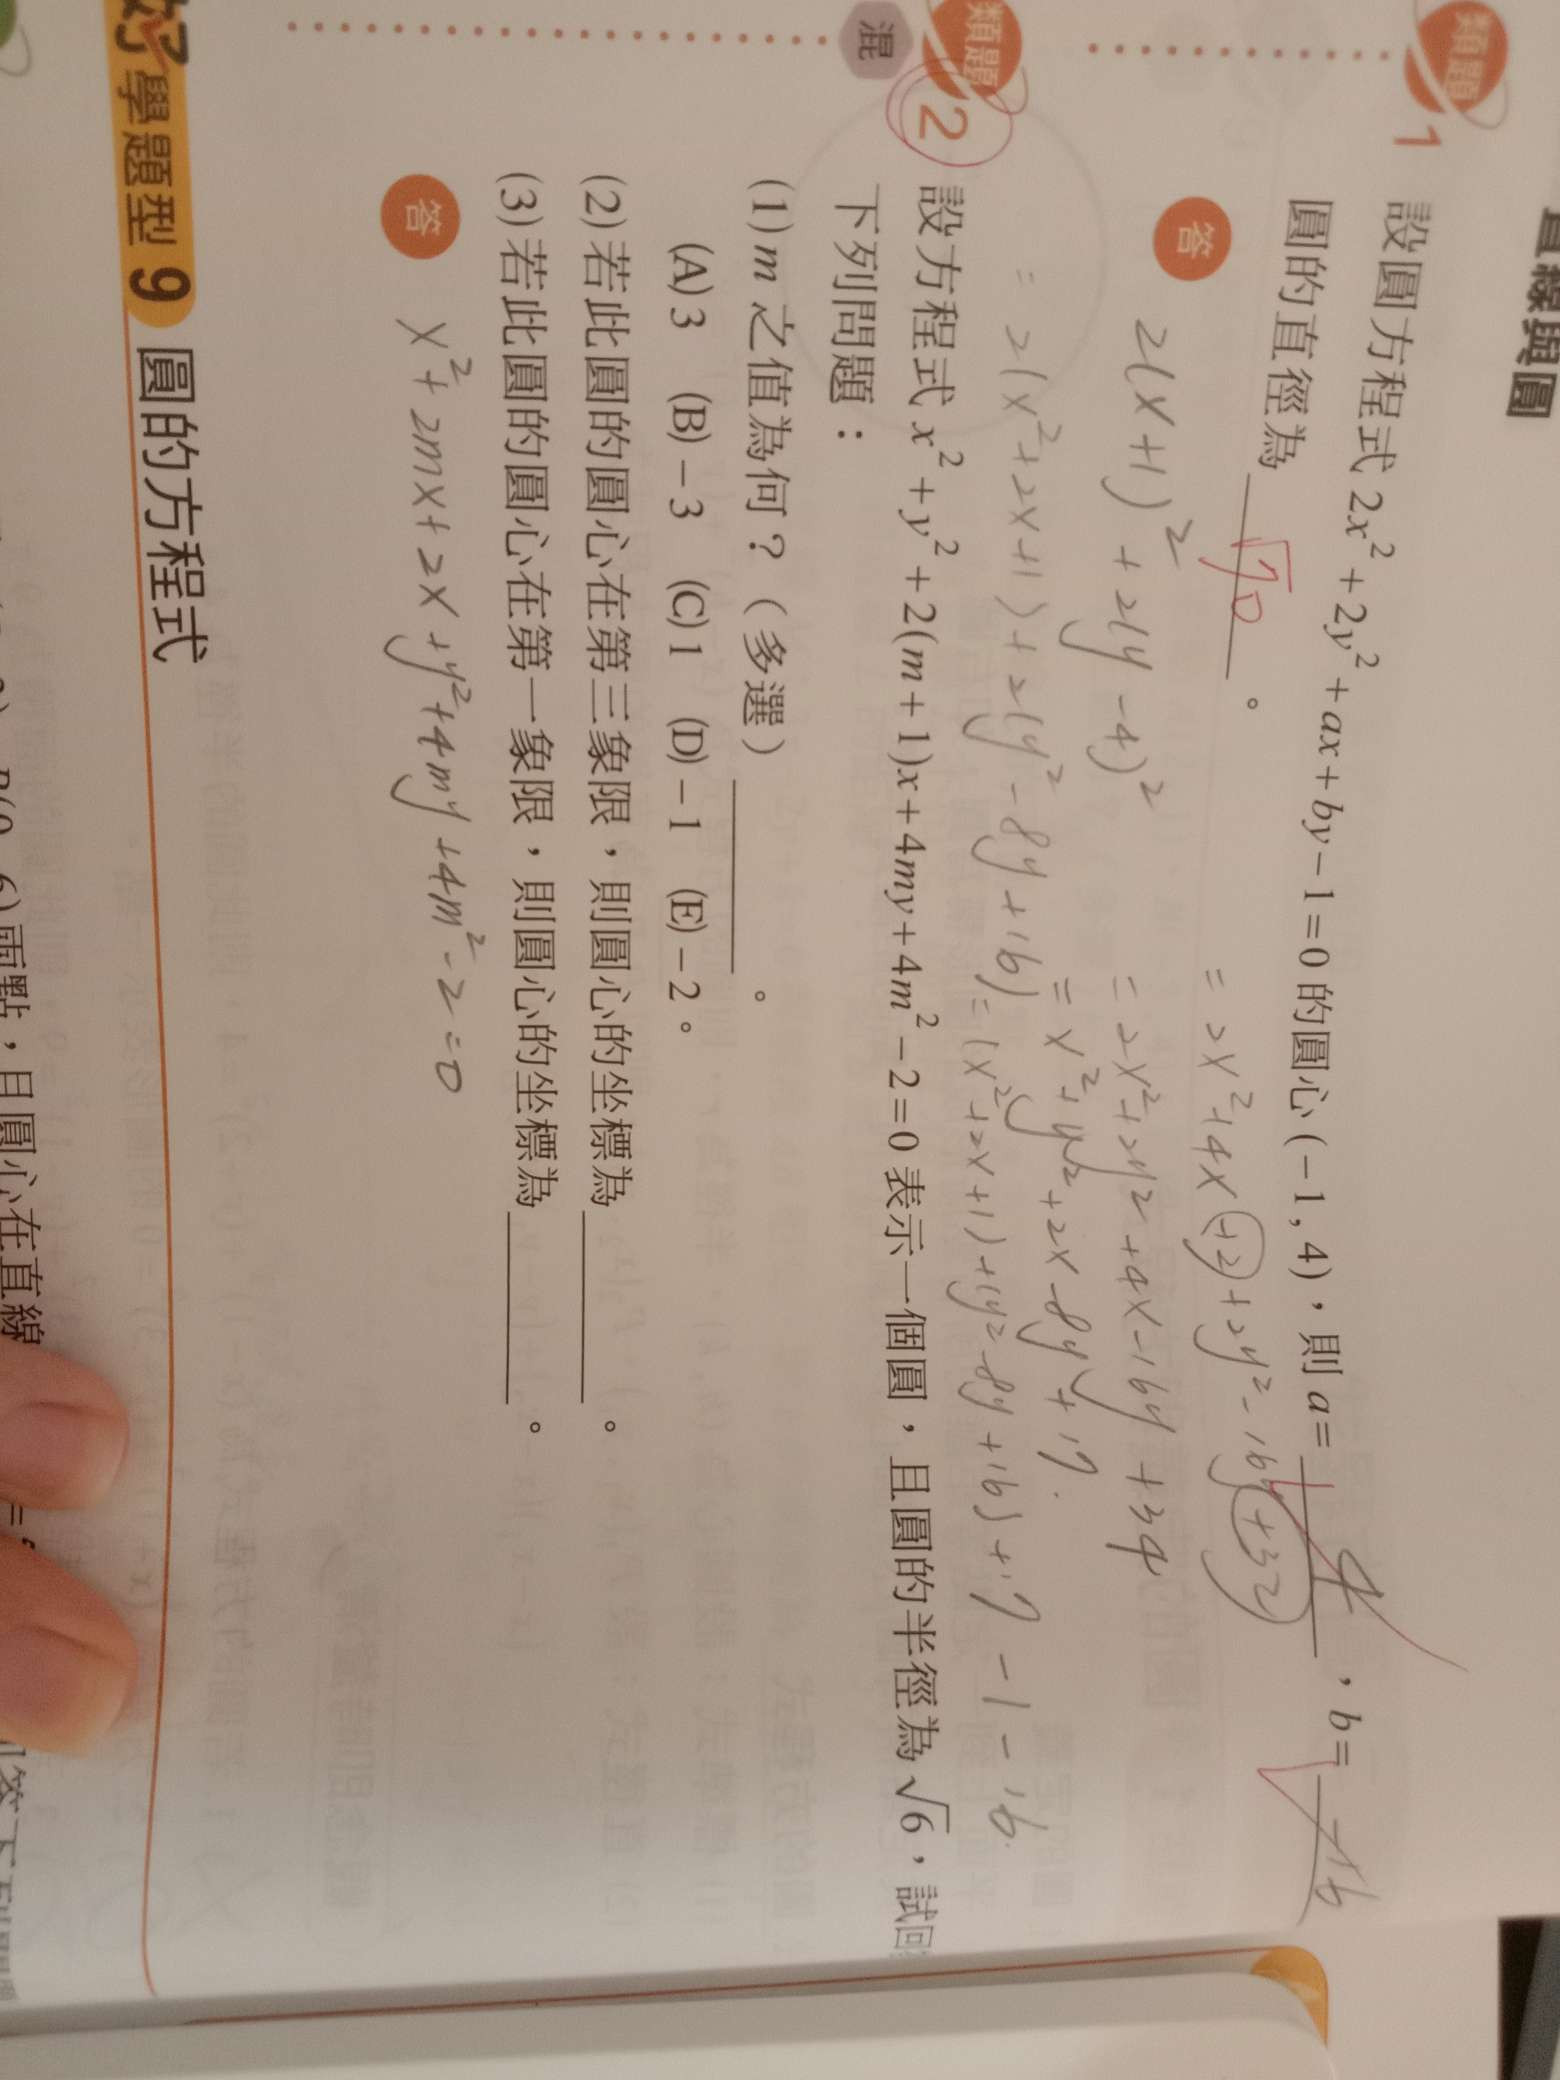 直線與圓
類題 1
設圓方程式 2x²+2y²+ax+by-1=0 的圓心(-1,4),則 a= 4 ,b= -16
圓的直徑為 √70 。
= 2x²+4x+2+2y²-16y+32
答
2(x+1)²+2(y-4)²
= 2x²+2y²+4x-16y+34
= x²+y²+2x-8y+17.
= 2(x²+2x+1)+2(y²-8y+16)
= (x²+2x+1)+(y²-8y+16)+17-1-16.
類題 2
混
設方程式 x²+y²+2(m+1)x+4my+4m²-2=0 表示一個圓,且圓的半徑為√6,試回
下列問題:
(1) m 之值為何?(多選) 。
(A) 3 (B) -3 (C) 1 (D) -1 (E) -2。
(2) 若此圓的圓心在第三象限,則圓心的坐標為 。
(3) 若此圓的圓心在第一象限,則圓心的坐標為 。
答
x²+2mx+2x+y²+4my+4m²-2=0
學題型 9 圓的方程式
兩點,且圓心在直線